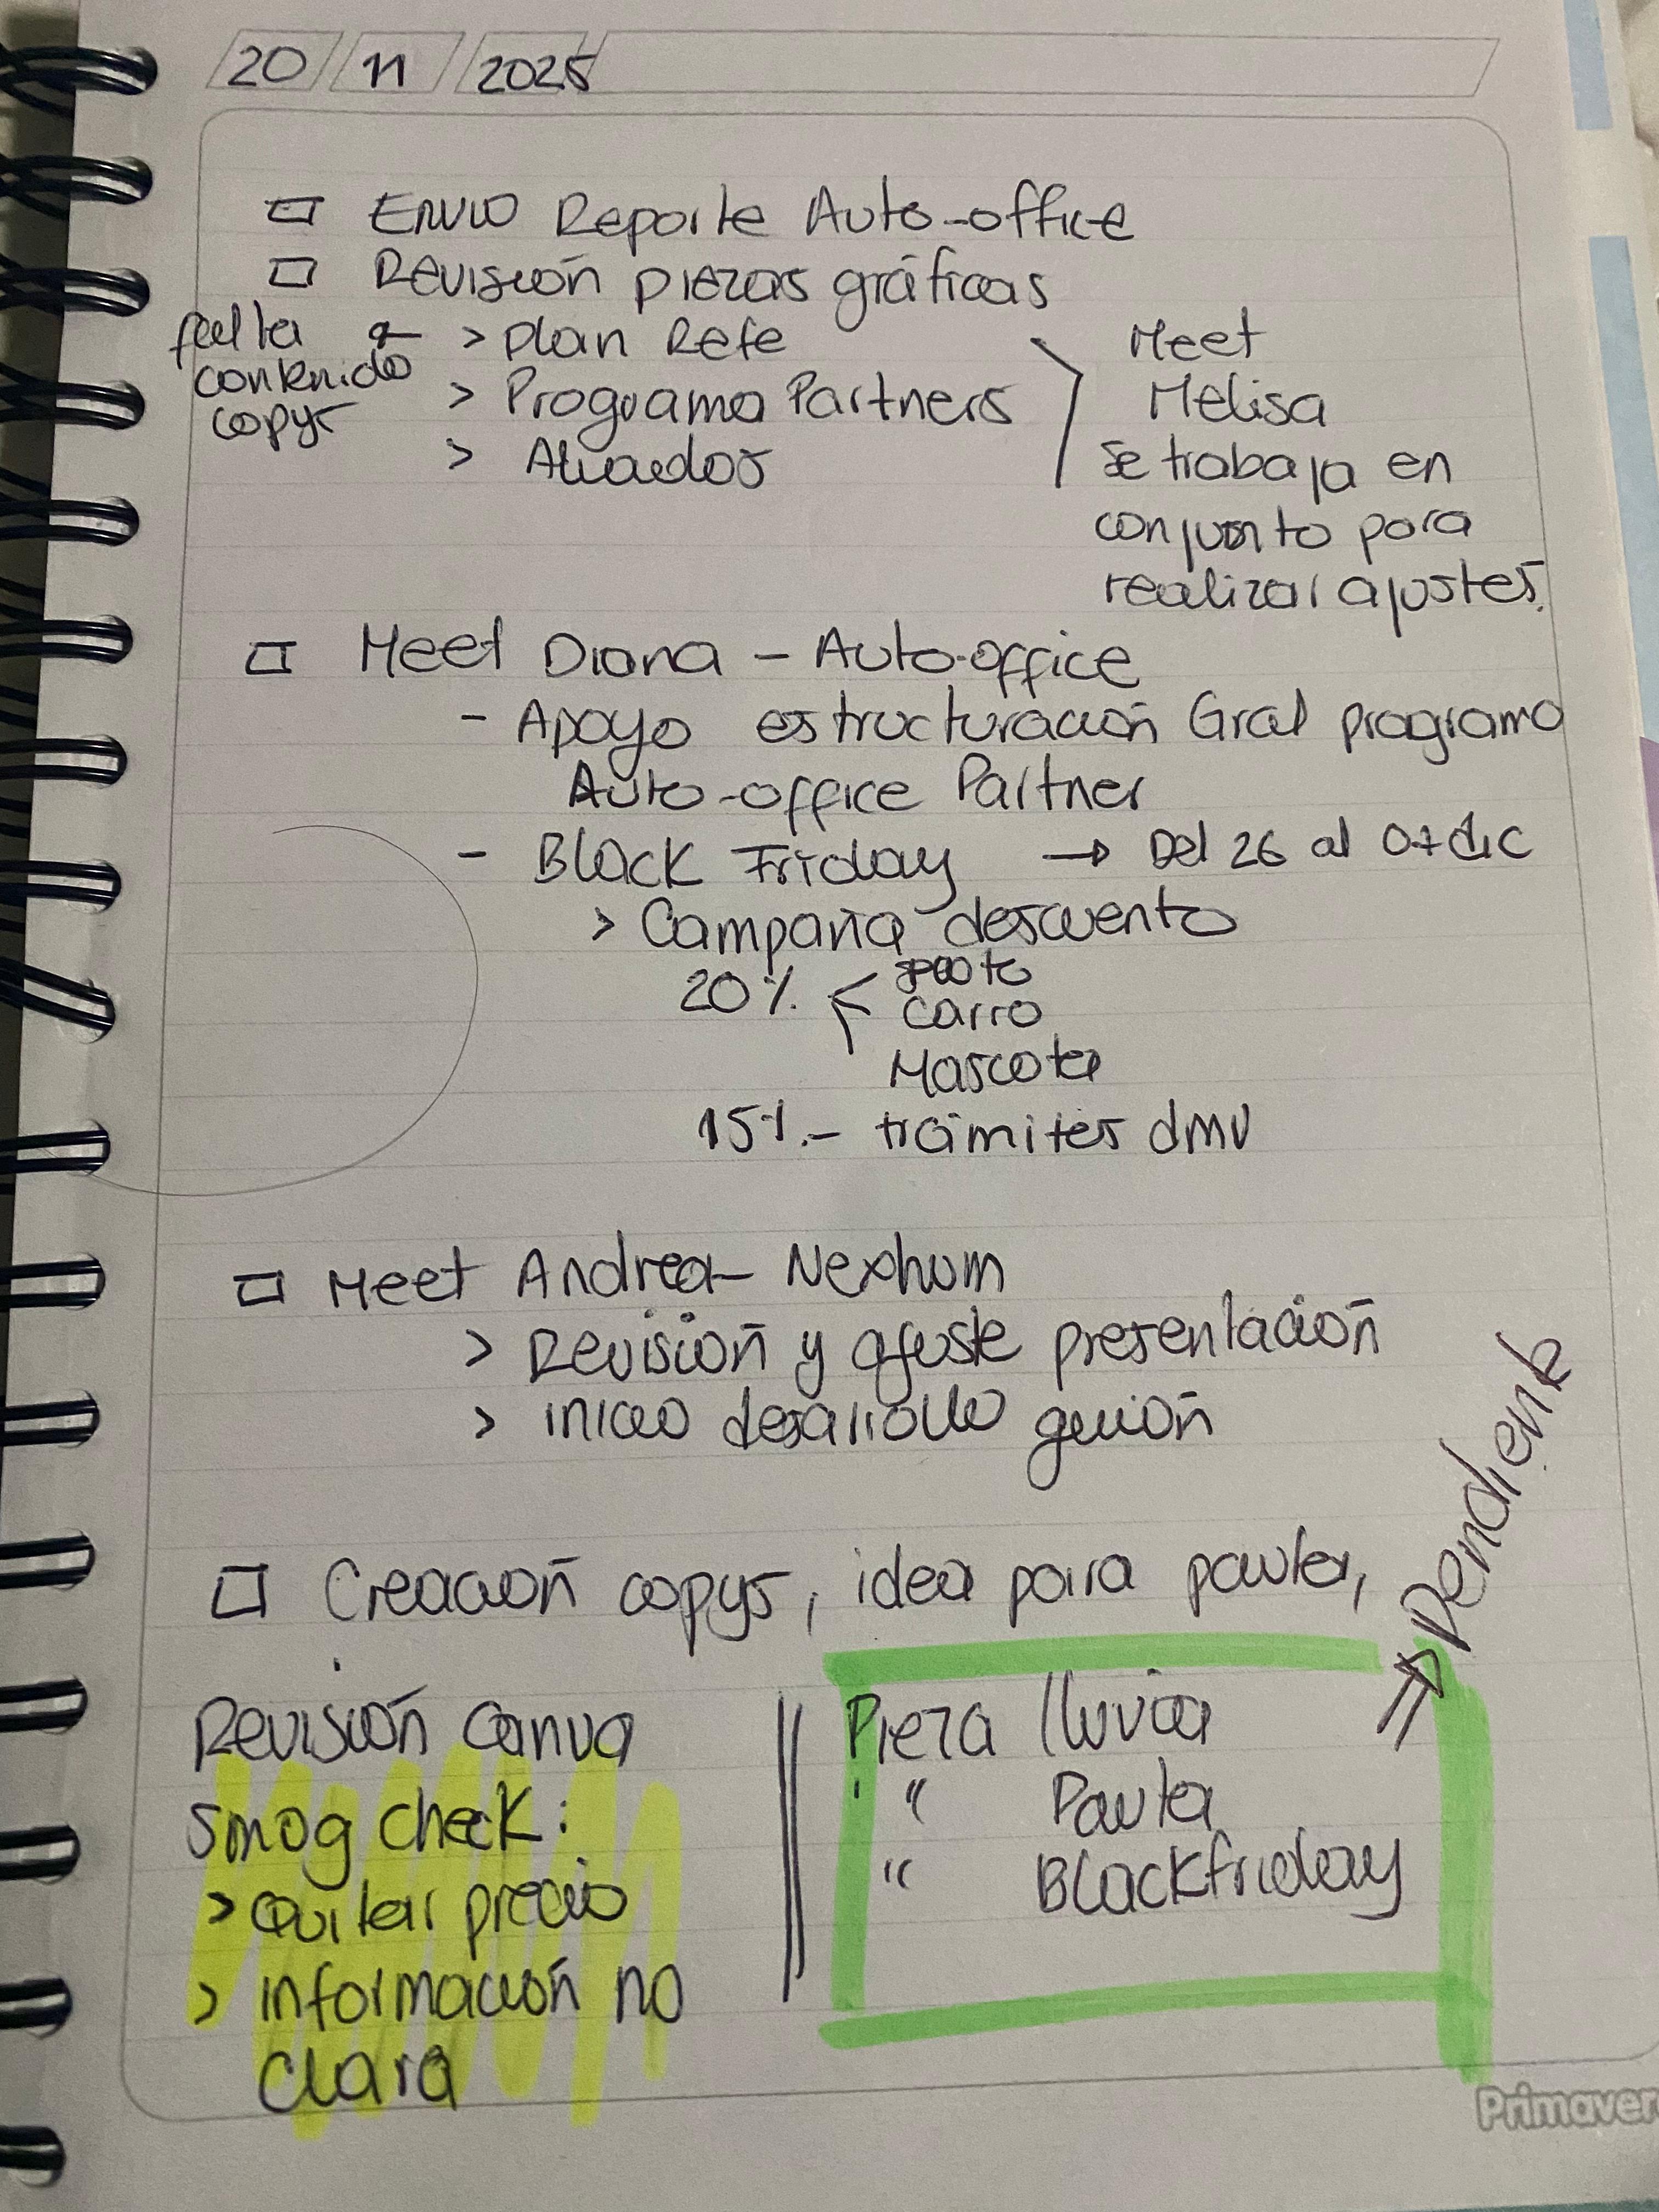 20 11 2025
□ Envio Reporte Auto-office
□ Revisión piezas gráficas
> Plan Refe
> Programa Partners
> Aliados
falta
contenido
copys
Meet
Melisa
se trabaja en
conjunto para
realizar ajustes.
□ Meet Diana - Auto-office
- Apoyo estructuración Gral programa
Auto-office Partner
- Black Friday → Del 26 al 07 dic
> Campaña descuento
20%
carro
Mascota
15% - trámites dmv
□ Meet Andrea - Nexhum
> Revisión y ajuste presentación
> inicio desarrollo guión
□ Creación copys, idea para pauta,
⇒ Pendiente
Revisión Canva
Smog check:
> Quitar precio
> información no
clara
Pieza lluvia
" " Pauta
" Blackfriday
Primaver